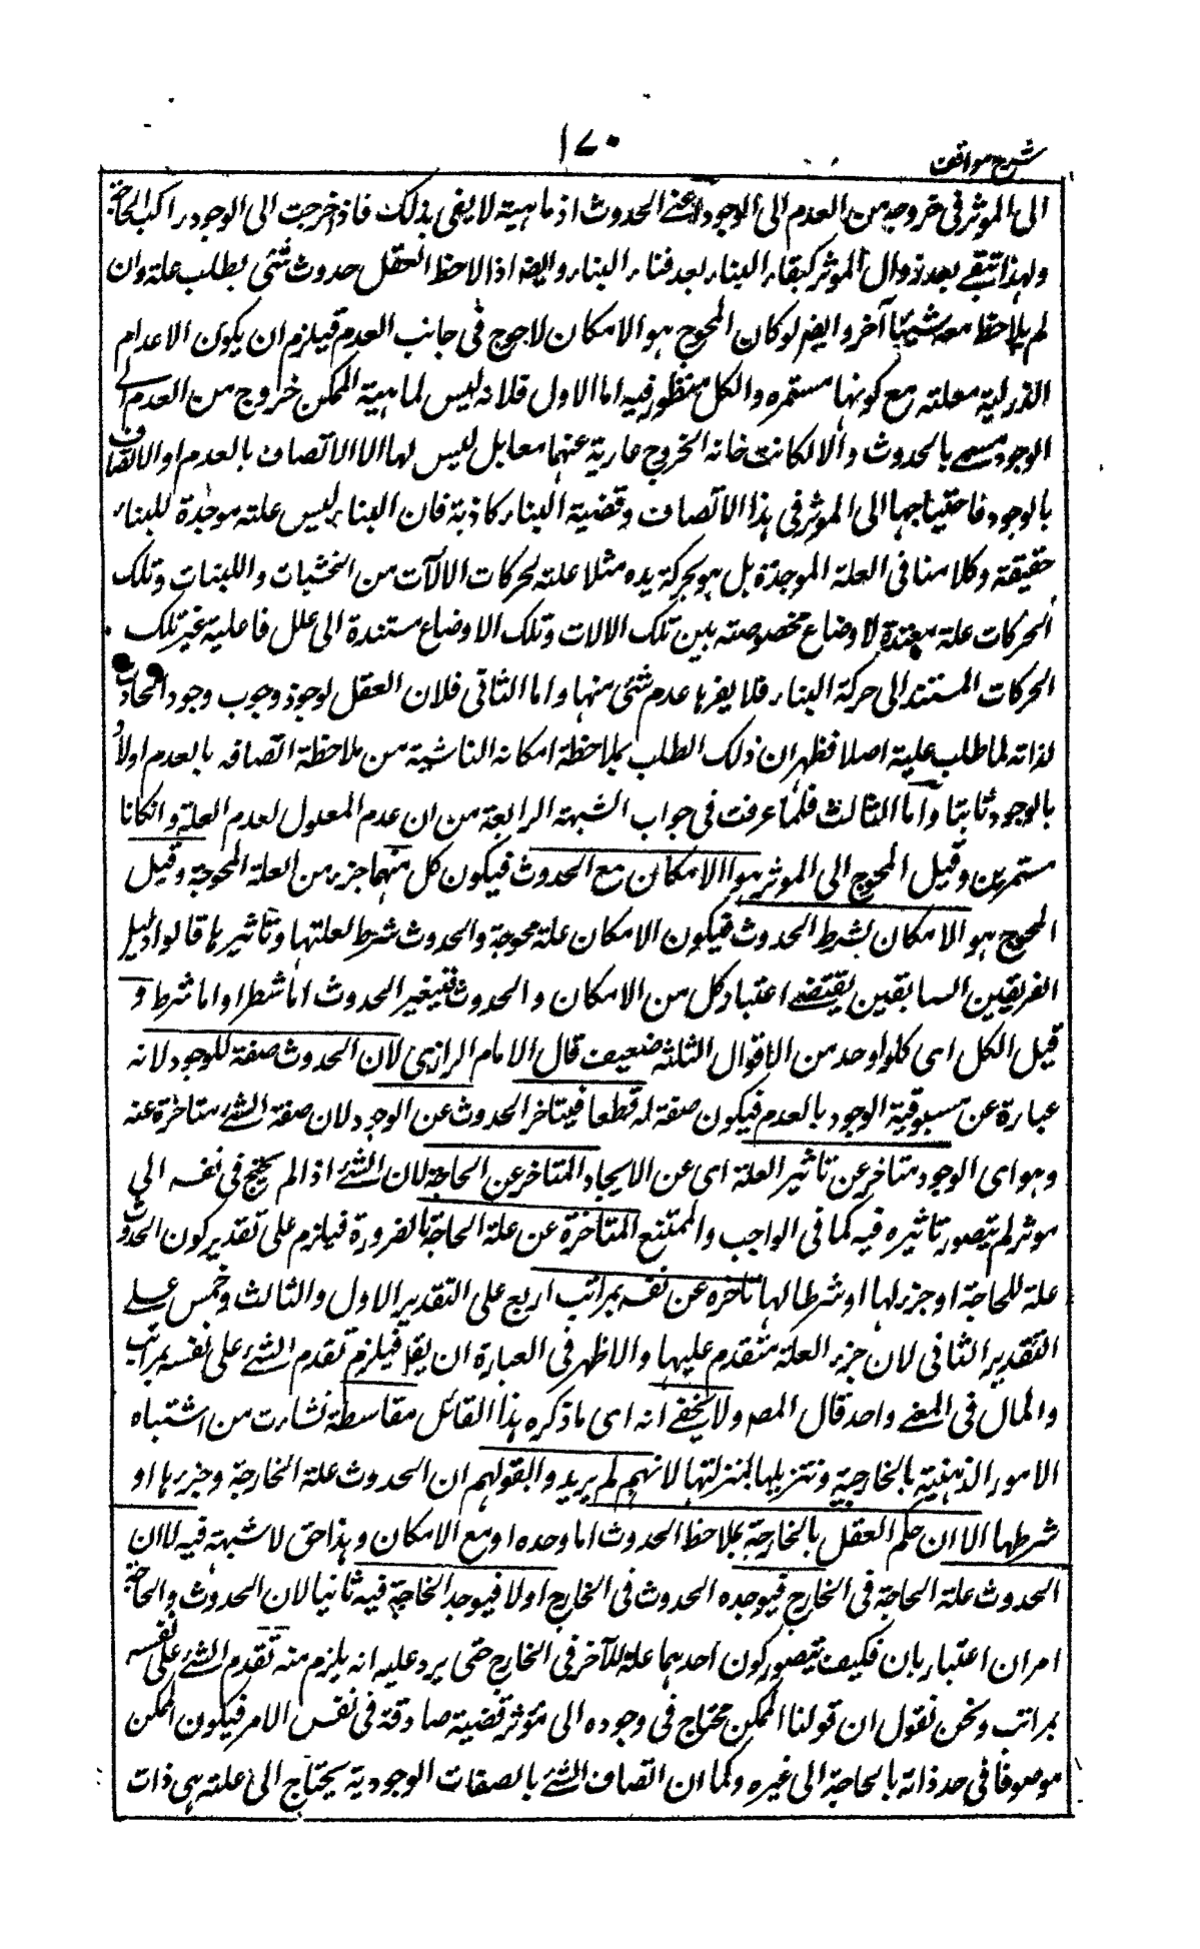 ١٧٠
شرح مواقف
الى الموثر فى خروجه من العدم الى الوجود اعنے الحدوث اذ ماهية لا يفى بذلك فاذا خرجت الى الوجود زالت الحاجة
ولهذا تبقے بعد زوال الموثر كبقاء البناء بعد فناء البناء وايضا اذا لاحظ العقل حدوث شئى يطلب علة وان
لم يلاحظ معه شيئا آخر وايضا لو كان المحوج هو الامكان لاحوج فى جانب العدم فيلزم ان يكون الاعدام
الازلية معللة مع كونها مستمرة والكل منظور فيه اما الاول فلانه ليس لماهية الممكن خروج من العدم الى
الوجود مسمے بالحدوث والا لكانت حالة الخروج عارية عنهما معا بل ليس لها الا الاتصاف بالعدم او الاتصاف
بالوجود فاحتياجها الى الموثر فى هذا الاتصاف وقضية البناء كاذبة فان البناء ليس علة موجدة للبناء
حقيقة وكلامنا فى العلة الموجدة بل هو بحركة يده مثلا علة لحركات الآلات من الخشبات واللبنات وتلك
الحركات علة معدة لاوضاع مخصوصة بين تلك الالات وتلك الاوضاع مستندة الى علل فاعلية غير تلك
الحركات المستند الى حركة البناء فلا يضرها عدم شئى منها واما الثانى فلان العقل لو جوز وجوب وجود الحادث
لذاته لما طلب علية اصلا فظهر ان ذلك الطلب بملاحظة امكانه الناشية من ملاحظة اتصافه بالعدم اولا
بالوجود ثانيا واما الثالث فلما عرفت فى جواب الشبهة الرابعة من ان عدم المعلول لعدم العلة وان كانا
مستمرين وقيل المحوج الى الموثر هو الامكان مع الحدوث فيكون كل منهما جزء من العلة المحوجة وقيل
المحوج هو الامكان بشرط الحدوث فيكون الامكان علة محوجة والحدوث شرط لعلتها وتاثيرها قالوا دليل
الفريقين السابقين يقتضے اعتبار كل من الامكان والحدوث فيعتبر الحدوث اما شطرا واما شرط و
قيل الكل اى كل واحد من الاقوال الثلثه ضعيف قال الامام الرازى لان الحدوث صفة للوجود لانه
عبارة عن مسبوقية الوجود بالعدم فيكون صفة له قطعا فيتاخر الحدوث عن الوجود لان صفة الشئ متاخرة عنه
وهو اى الوجود متاخر عن تاثير العلة اى عن الايجاد المتاخر عن الحاجة لان الشئ اذا لم يحتج فى نفسه الى
موثر لم يتصور تاثيره فيه كما فى الواجب والممتنع المتاخرة عن علة الحاجة بالضرورة فيلزم على تقدير كون الحدوث
علة للحاجة او جزء لها او شرطا لها تاخره عن نفسه بمراتب اربع على التقدير الاول والثالث وخمس علے
التقدير الثانى لان جزء العلة متقدم عليها والاظهر فى العبارة ان يقا فيلزم تقدم الشئ على نفسه بمراتب
والمال فى المعنے واحد قال المص ولا يخفے انه اى ما ذكره هذا القائل مغالطة نشارت من اشتباه
الامور الذهنية بالخارجية وتنزيلها بمنزلتها لانهم لم يريدوا بقولهم ان الحدوث علة الحاجة وجزءها او
شرطها الا ان حكم العقل بالحاجة بملاحظ الحدوث اما وحده او مع الامكان وهذا حق لا شبهة فيه لا ان
الحدوث علة الحاجة فى الخارج فيوجده الحدوث فى الخارج اولا فيوجد الحاجة فيه ثانيا لان الحدوث والحاجة
امران اعتباريان فكيف يتصور كون احدهما علة للآخر فى الخارج حتى يرد عليه انه يلزم منه تقدم الشئ على نفسه
بمراتب ونحن نقول ان قولنا الممكن محتاج فى وجوده الى مؤثر قضية صادقة فى نفس الامر فيكون الممكن
موصوفا فى حد ذاته بالحاجة الى غيره وكما ان اتصاف الشئ بالصفات الوجودية يحتاج الى علة هى ذات